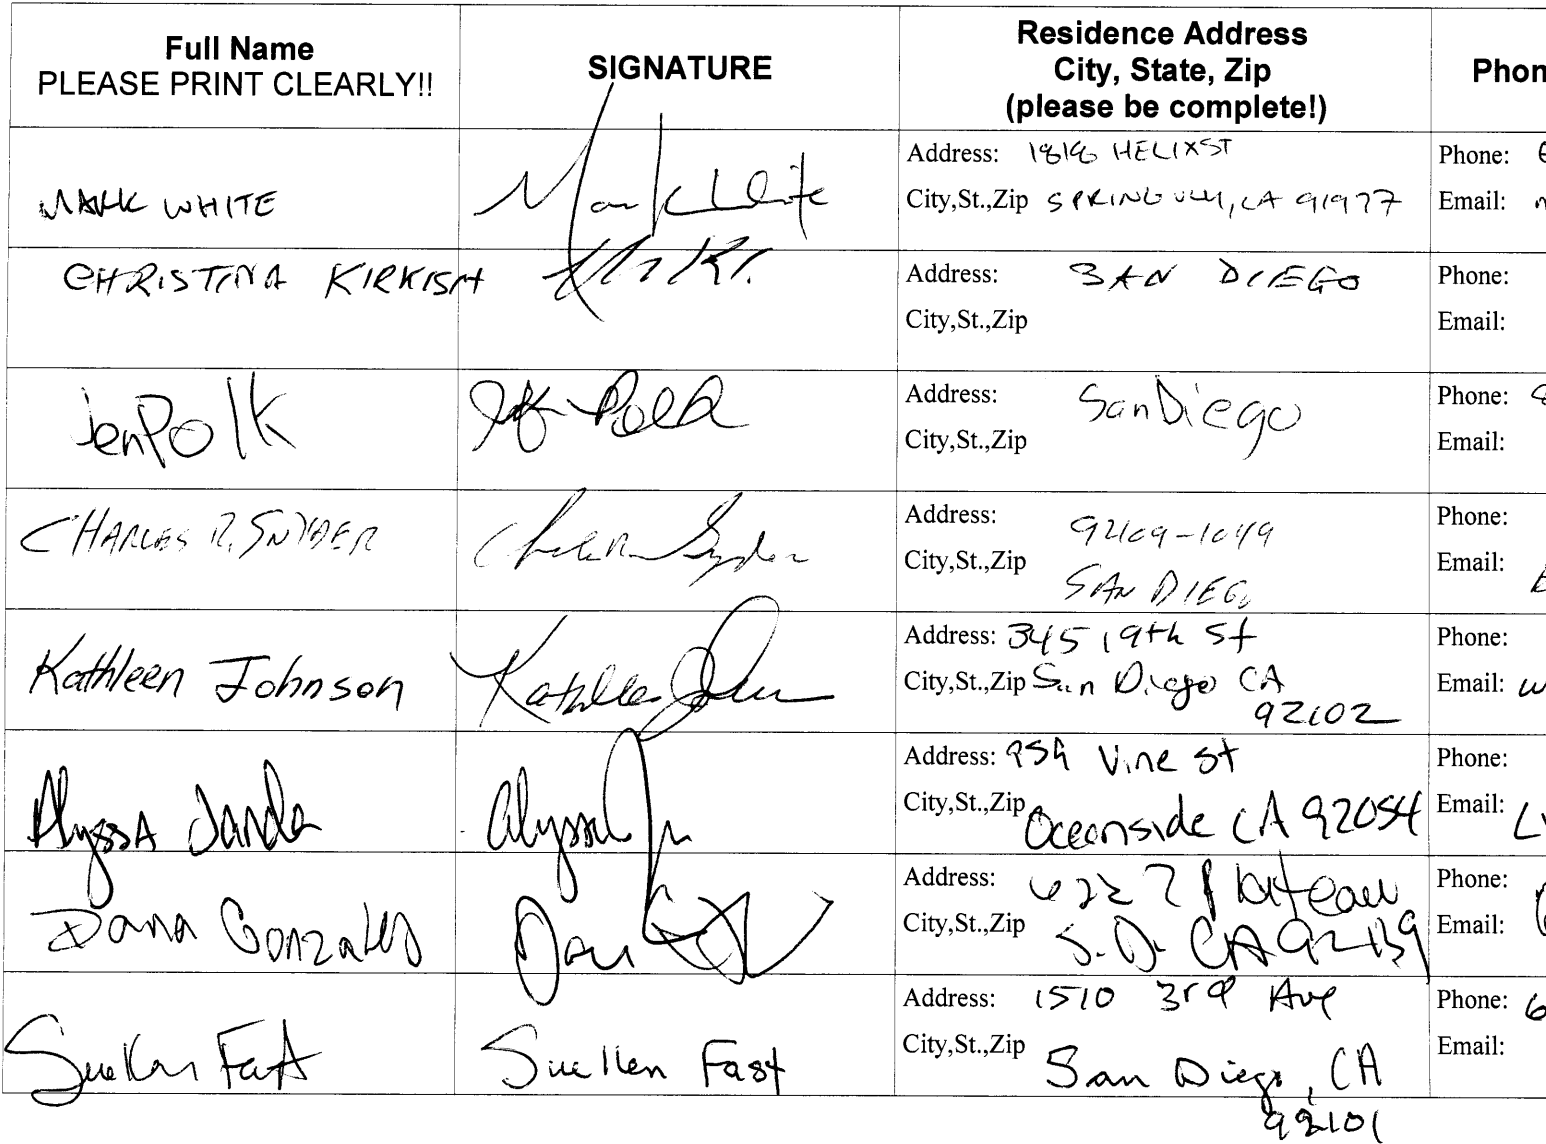 Full Name
PLEASE PRINT CLEARLY!!
SIGNATURE
Residence Address
City, State, Zip
(please be complete!)
Phon
MARK WHITE
Mark White
Address: 1818 HELIX ST
City,St.,Zip SPRING VLLY, CA 91977
Phone:
Email:
CHRISTINA KIRKISH
Address: SAN DIEGO
City,St.,Zip
Phone:
Email:
Jen Polk
Polk
Address: San Diego
City,St.,Zip
Phone: 8
Email:
CHARLES R. SNYDER
Charles R Snyder
Address: 92109-1049
City,St.,Zip SAN DIEGO
Phone:
Email:
Kathleen Johnson
Kathleen John
Address: 345 19th St
City,St.,Zip San Diego CA
92102
Phone:
Email: w
Alyssa Janda
Alyssa J
Address: 959 Vine St
City,St.,Zip Oceanside CA 92054
Phone:
Email: L
Dana Gonzales
Dana
Address: 6222 Plateau
City,St.,Zip S.D. CA 92139
Phone:
Email:
Suellen Fast
Suellen Fast
Address: 1510 3rd Ave
City,St.,Zip San Diego, CA
92101
Phone: 6
Email: